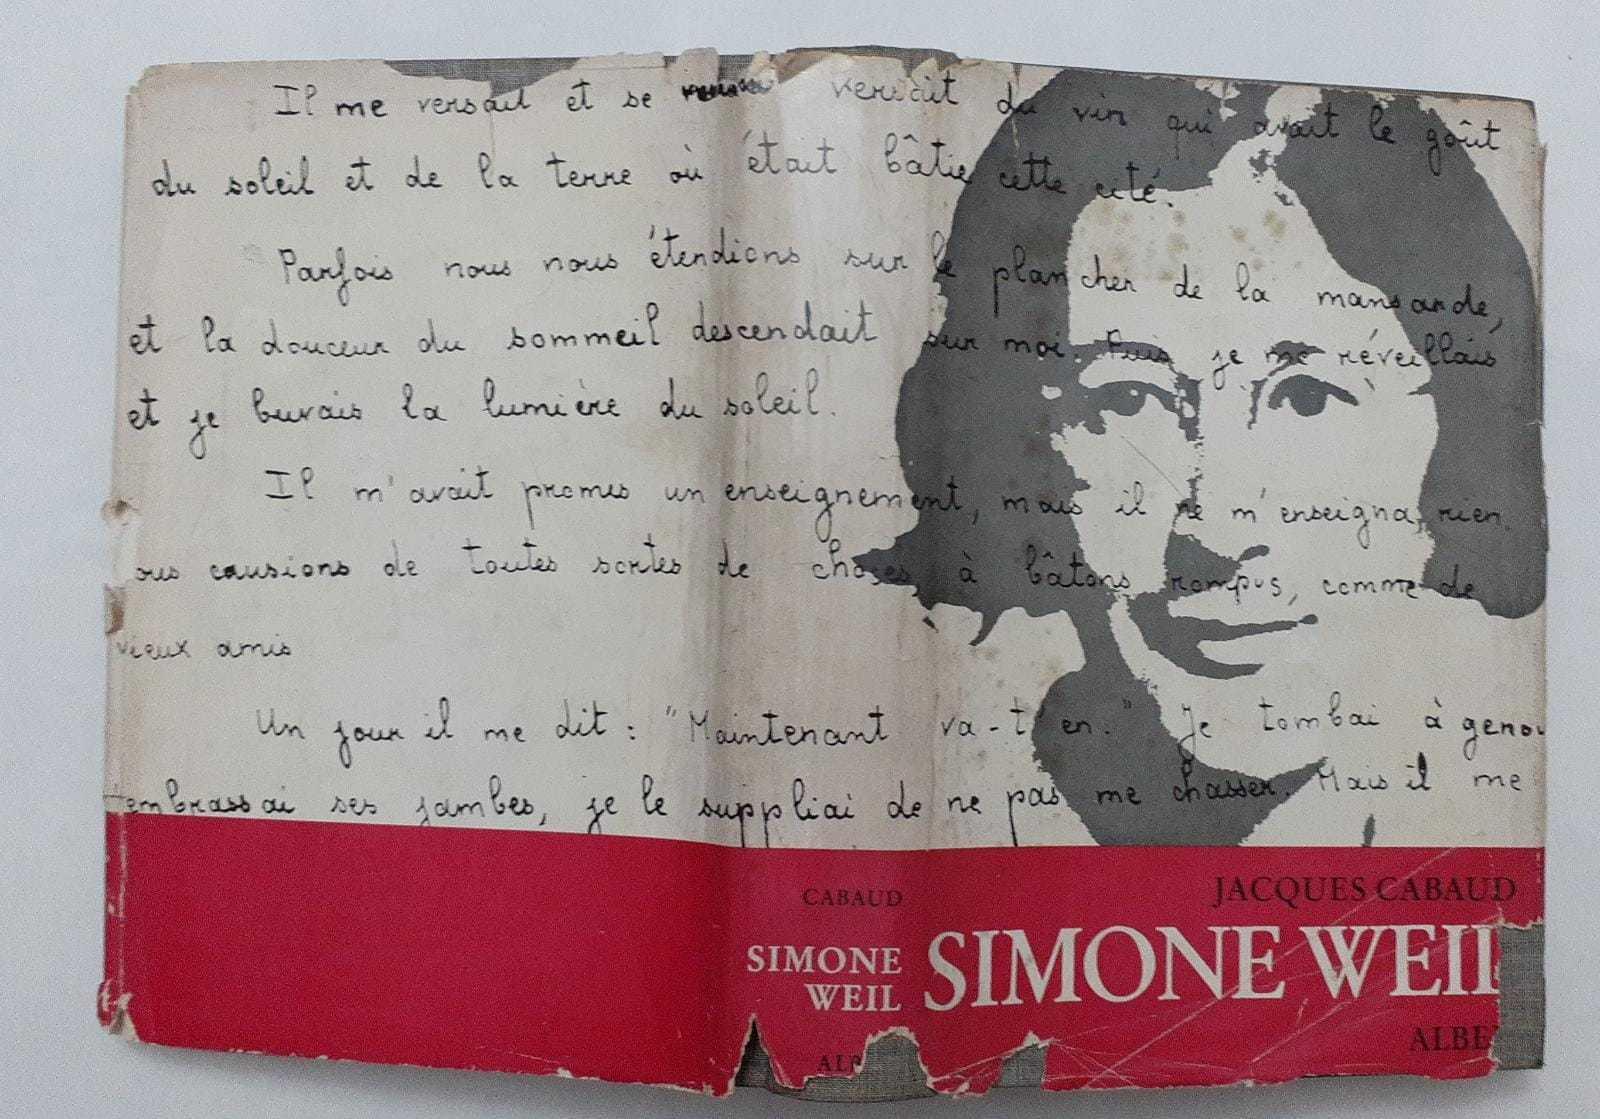 Il me versait et se versait du vin qui avait le goût
du soleil et de la terre où était bâtie cette cité.
Parfois nous nous étendions sur le plancher de la mansarde,
et la douceur du sommeil descendait sur moi. Puis je me réveillais
et je buvais la lumière du soleil.
Il m'avait promis un enseignement, mais il ne m'enseigna rien.
ous causions de toutes sortes de choses à bâtons rompus, comme de
vieux amis
Un jour il me dit : "Maintenant va-t'en." Je tombai à genou
embrassai ses jambes, je le suppliai de ne pas me chasser. Mais il me
CABAUD
SIMONE
WEIL
ALB
JACQUES CABAUD
SIMONE WEIL
ALBE